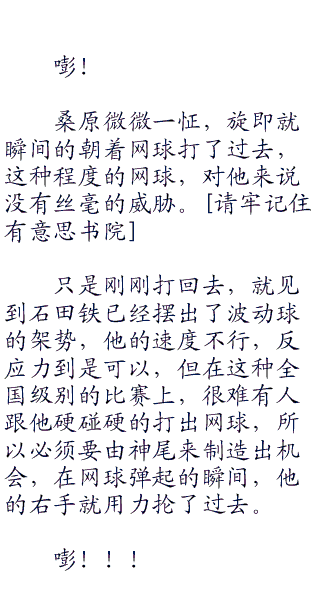 嘭！
桑原微微一怔，旋即就
瞬间的朝着网球打了过去，
这种程度的网球，对他来说
没有丝毫的威胁。[请牢记住
有意思书院]
只是刚刚打回去，就见
到石田铁已经摆出了波动球
的架势，他的速度不行，反
应力到是可以，但在这种全
国级别的比赛上，很难有人
跟他硬碰硬的打出网球，所
以必须要由神尾来制造出机
会，在网球弹起的瞬间，他
的右手就用力抡了过去。
嘭！！！